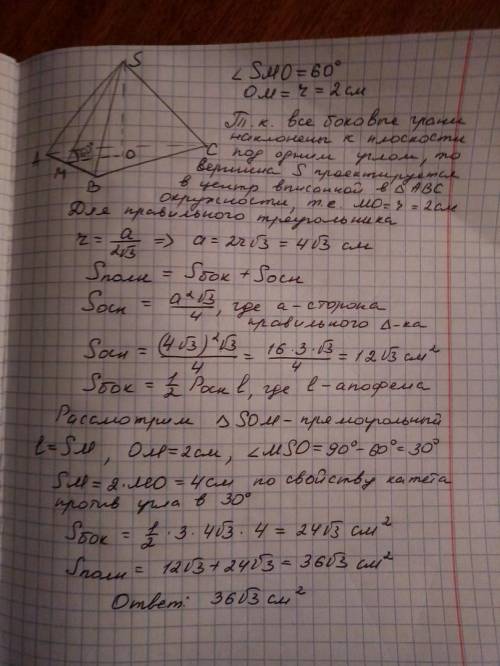 S
∠SMO = 60°
OM = r = 2 см
Т.к. все боковые грани
наклонены к плоскости
A 60° O C
под одним углом, то
M
вершина S проектируется
B
в центр вписанной в △ABC
окружности, т.е. MO = r = 2 см
Для правильного треугольника
r = a/(2√3) => a = 2r√3 = 4√3 см
Sполн = Sбок + Sосн
Sосн = a²√3/4, где a - сторона
правильного Δ-ка
Sосн = (4√3)²√3/4 = 16·3·√3/4 = 12√3 см²
Sбок = 1/2 Pосн l, где l - апофема
Рассмотрим △SOM - прямоугольный
l = SM, OM = 2см, ∠MSO = 90° - 60° = 30°
SM = 2·MO = 4см по свойству катета
против угла в 30°
Sбок = 1/2 · 3 · 4√3 · 4 = 24√3 см²
Sполн = 12√3 + 24√3 = 36√3 см²
Ответ: 36√3 см²